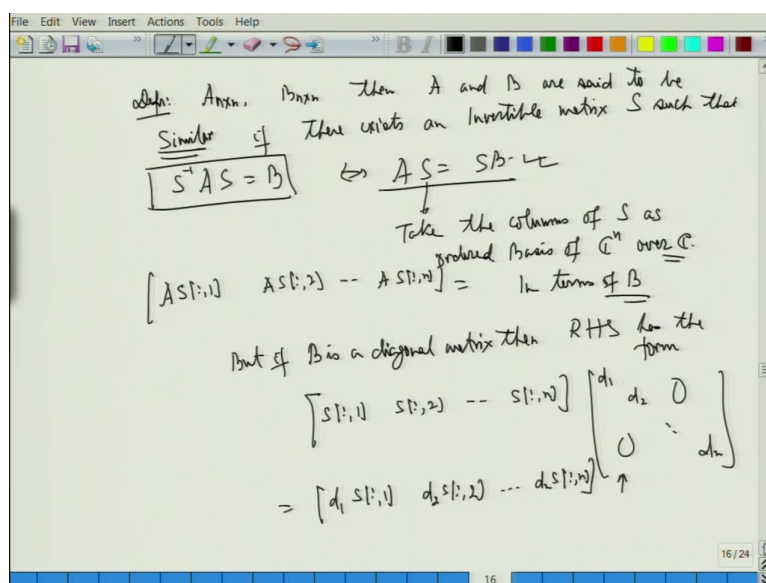 File Edit View Insert Actions Tools Help
Defn: Anxn, Bnxn then A and B are said to be
Similar if there exists an Invertible matrix S such that
S⁻¹AS = B ⇔ AS = SB
Take the columns of S as
ordered Basis of ℂⁿ over ℂ.
[AS[:,1] AS[:,2] -- AS[:,n]] = In terms of B
But if B is a diagonal matrix then RHS has the
form
[S[:,1] S[:,2] -- S[:,n]] [d₁ d₂ 0 0 ⋱ dₙ]
= [d₁ S[:,1] d₂ S[:,2] ... dₙ S[:,n]]
16 / 24
16